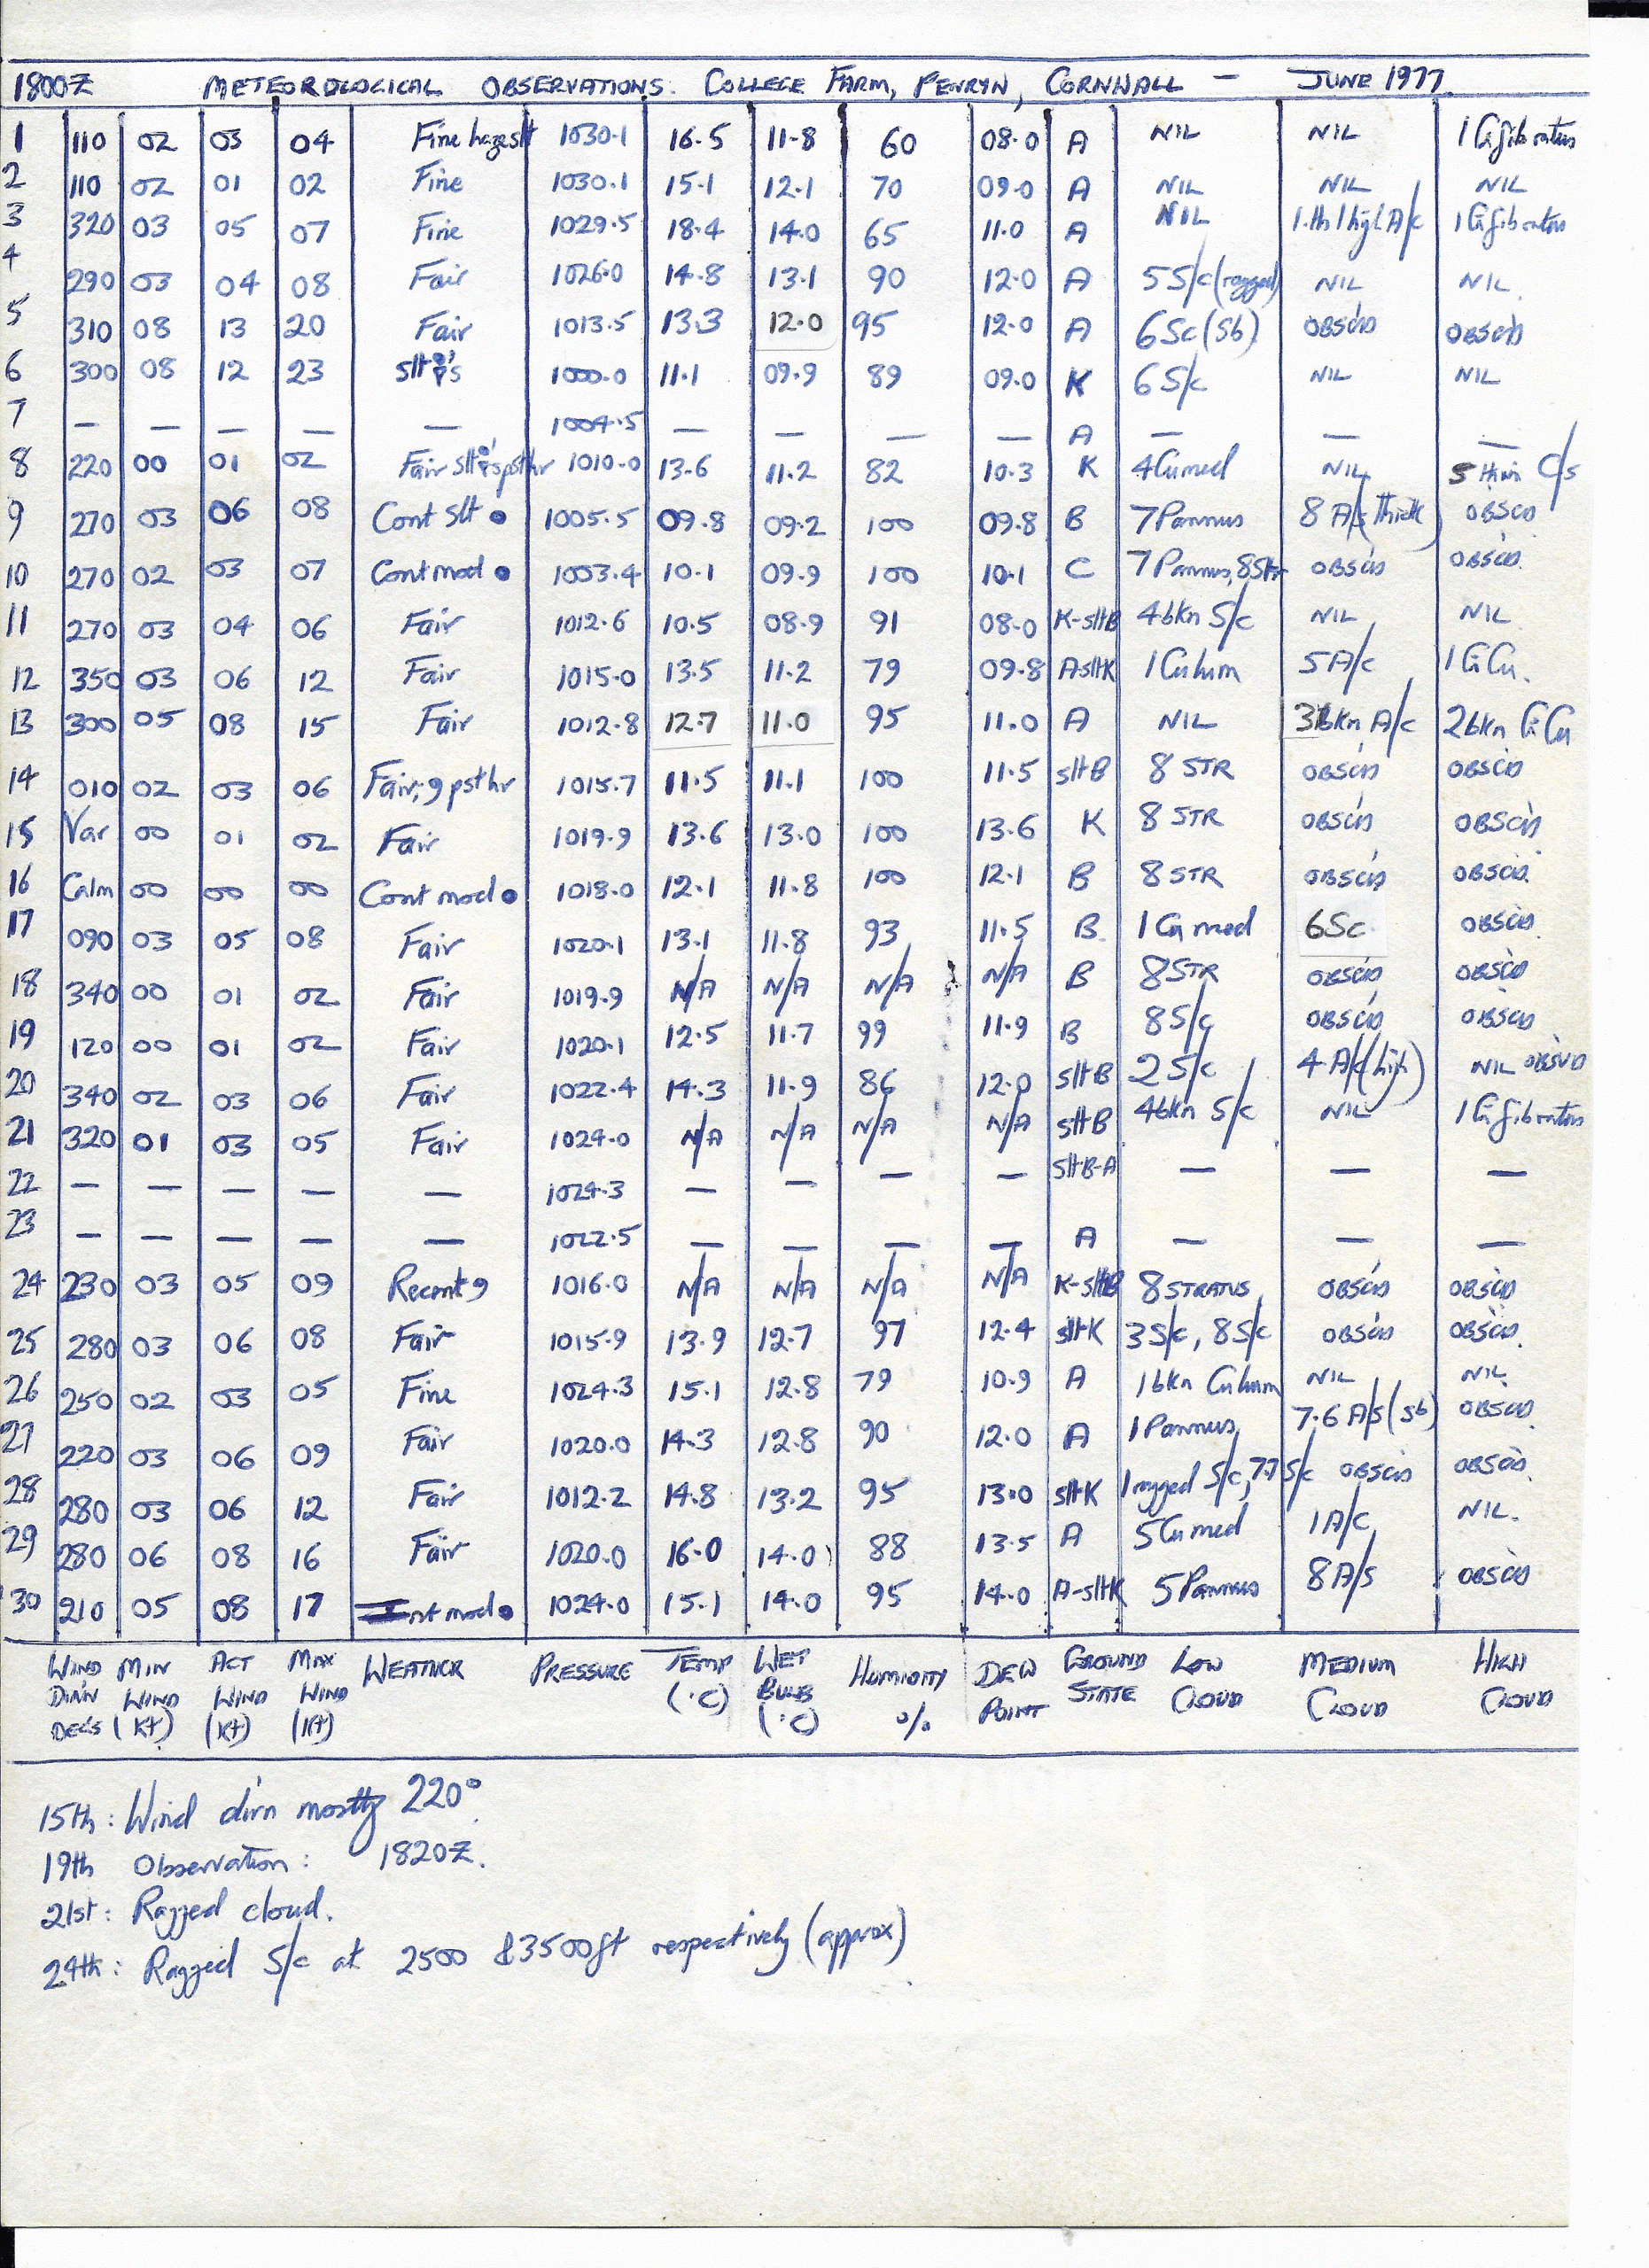 1800Z METEOROLOGICAL OBSERVATIONS: COLLEGE FARM, PENRYN, CORNWALL — JUNE 1977.
1 110 02 03 04 Fine haze slt 1030.1 16.5 11.8 60 08.0 A NIL NIL 1 Ci fibratus
2 110 02 01 02 Fine 1030.1 15.1 12.1 70 09.0 A NIL NIL NIL
3 320 03 05 07 Fine 1029.5 18.4 14.0 65 11.0 A NIL 1 high A/c 1 Ci fibratus
4 290 03 04 08 Fair 1026.0 14.8 13.1 90 12.0 A 5 S/c (ragged) NIL NIL.
5 310 08 13 20 Fair 1013.5 13.3 12.0 95 12.0 A 6 Sc (Sb) OBSC'D OBSC'D
6 300 08 12 23 slt 's 1000.0 11.1 09.9 89 09.0 K 6 S/c NIL NIL
7 — — — — — 1004.5 — — — — A — — —
8 220 00 01 02 Fair slt 's pst hr 1010.0 13.6 11.2 82 10.3 K 4 Cu med NIL 5 thin C/s
9 270 03 06 08 Cont slt ● 1005.5 09.8 09.2 100 09.8 B 7 Pannus 8 A/s (thick) OBSC'D
10 270 02 03 07 Cont mod ● 1003.4 10.1 09.9 100 10.1 C 7 Pannus, 8 Str OBSC'D OBSC'D.
11 270 03 04 06 Fair 1012.6 10.5 08.9 91 08.0 K-sltB 4 bkn S/c NIL NIL
12 350 03 06 12 Fair 1015.0 13.5 11.2 79 09.8 A-sltK 1 Cu hum 5 A/c 1 CiCu.
13 300 05 08 15 Fair 1012.8 12.7 11.0 95 11.0 A NIL 3 bkn A/c 2 bkn CiCu
14 010 02 03 06 Fair, 9 pst hr 1015.7 11.5 11.1 100 11.5 sltB 8 STR OBSC'D OBSC'D
15 Var 00 01 02 Fair 1019.9 13.6 13.0 100 13.6 K 8 STR OBSC'D OBSC'D.
16 Calm 00 00 00 Cont mod ● 1018.0 12.1 11.8 100 12.1 B 8 STR OBSC'D OBSC'D.
17 090 03 05 08 Fair 1020.1 13.1 11.8 93 11.5 B 1 Cu med 6Sc OBSC'D.
18 340 00 01 02 Fair 1019.9 N/A N/A N/A N/A B 8 STR OBSC'D OBSC'D
19 120 00 01 02 Fair 1020.1 12.5 11.7 99 11.9 B 8 S/c OBSC'D OBSC'D
20 340 02 03 06 Fair 1022.4 14.3 11.9 86 12.0 sltB 2 S/c 4 A/c (high) NIL OBSV'D
21 320 01 03 05 Fair 1024.0 N/A N/A N/A N/A sltB 4 bkn S/c NIL 1 Ci fibratus
22 — — — — — 1024.3 — — — — sltB-A — — —
23 — — — — — 1022.5 — — — — A — — —
24 230 03 05 09 Recent 9 1016.0 N/A N/A N/A N/A K-sltB 8 STRATUS OBSC'D OBSC'D
25 280 03 06 08 Fair 1015.9 13.9 12.7 97 12.4 sltK 3 S/c, 8 S/c OBSC'D OBSC'D.
26 250 02 03 05 Fine 1024.3 15.1 12.8 79 10.9 A 1 bkn Cu hum NIL NIL.
27 220 03 06 09 Fair 1020.0 14.3 12.8 90 12.0 A 1 Pannus, 7.6 A/s (sb) OBSC'D.
28 280 03 06 12 Fair 1012.2 14.8 13.2 95 13.0 sltK 1 ragged S/c, 7.7 S/c OBSC'D OBSC'D.
29 280 06 08 16 Fair 1020.0 16.0 14.0 88 13.5 A 5 Cu med 1 A/c NIL.
30 210 05 08 17 nt mod ● 1024.0 15.1 14.0 95 14.0 A-sltK 5 Pannus 8 A/s OBSC'D
WIND DIR'N DEG'S MIN WIND (Kt) ACT WIND (Kt) MAX WIND (Kt) WEATHER PRESSURE TEMP (°C) WET BULB (°C) HUMIDITY % DEW POINT GROUND STATE LOW CLOUD MEDIUM CLOUD HIGH CLOUD
15th: Wind dir'n mostly 220°.
19th Observation: 1820Z.
21st: Ragged cloud.
24th: Ragged S/c at 2500 & 3500ft respectively (approx).